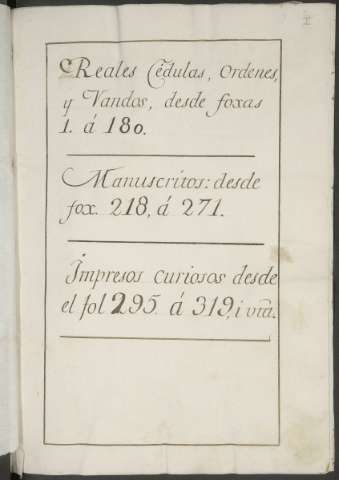 I
Reales Cédulas, Ordenes,
y Vandos, desde foxas
1. á 180.
Manuscritos: desde
fox. 218, á 271.
Impresos curiosos desde
el fol 295. á 319, i vta.